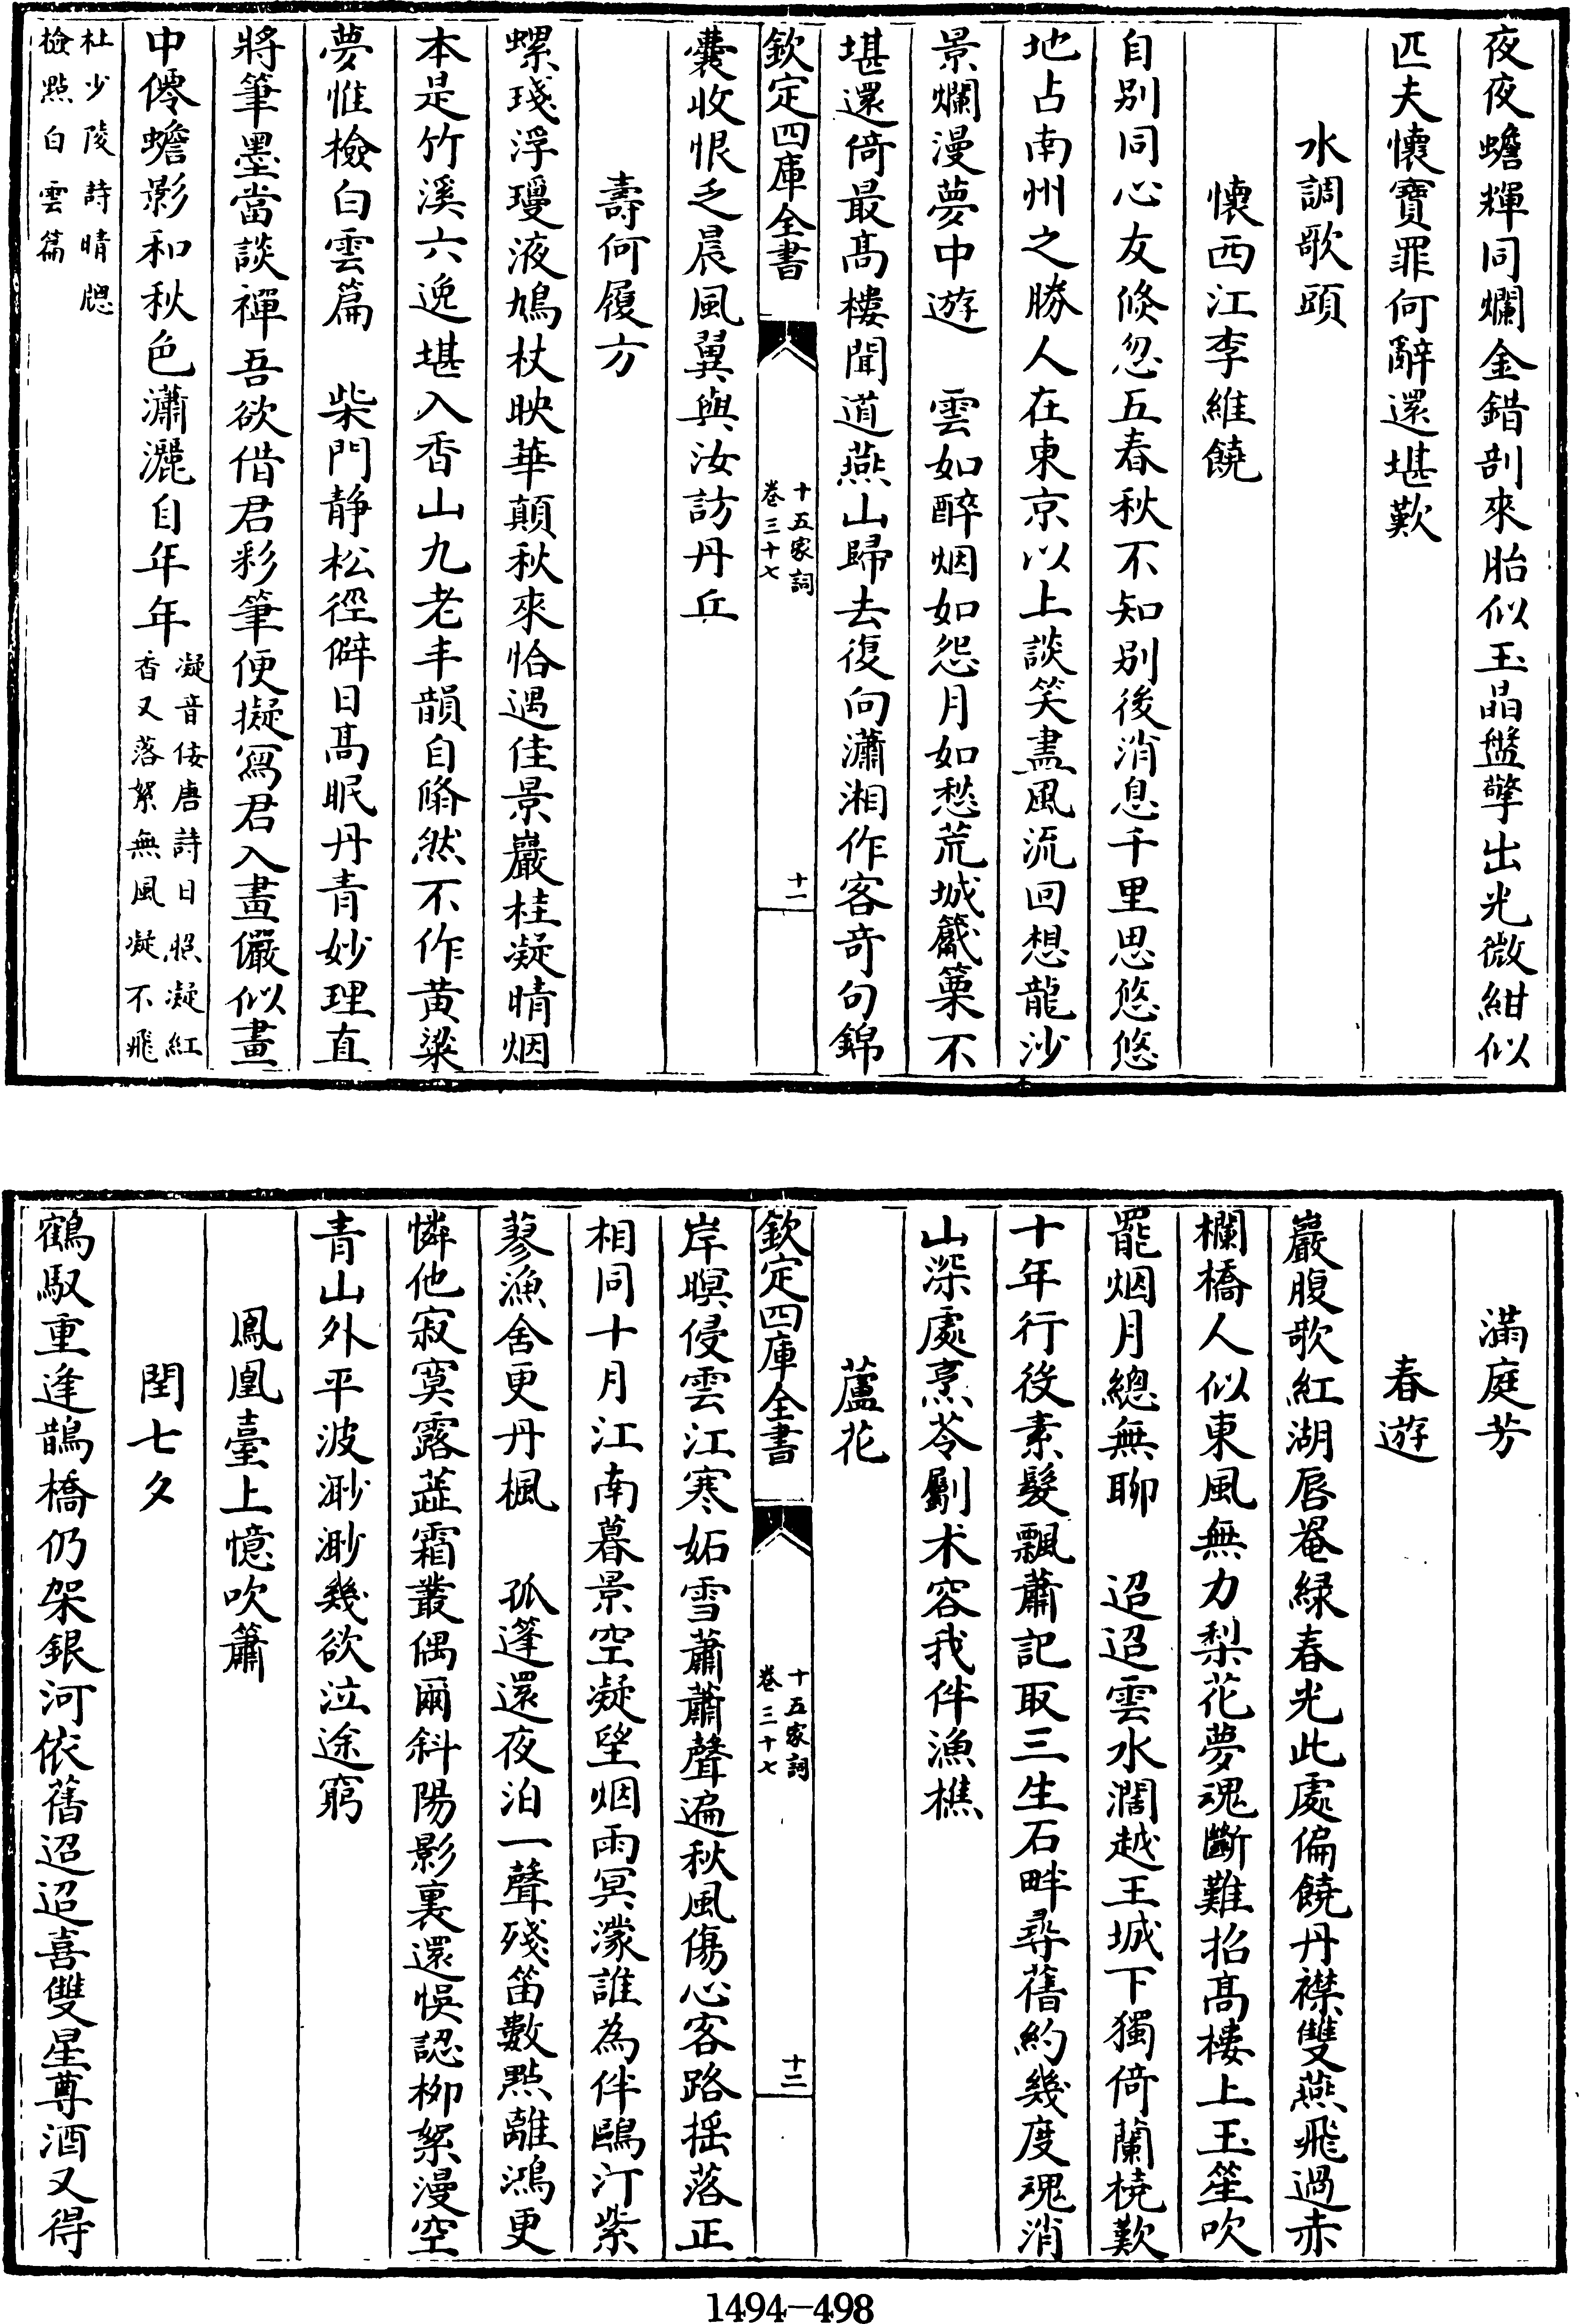 夜夜蟾輝同爛金錯剖來胎似玉晶盤擎出光微紺似
匹夫懷寶罪何辭還堪歎
水調歌頭
懷西江李維饒
自别同心友倐忽五春秋不知别後消息千里思悠悠
地占南州之勝人在東京以上談笑盡風流回想龍沙
景爛漫夢中遊　雲如醉烟如怨月如愁荒城觱篥不
堪還倚最髙樓聞道燕山歸去復向瀟湘作客竒句錦
欽定四庫全書
十五家詞
卷三十七
十一
囊收恨乏晨風翼與汝訪丹丘
壽何履方
螺琖浮璦液鳩杖映華顛秋來恰遇佳景巖桂凝晴烟
本是竹溪六逸堪入香山九老丰韻自翛然不作黄粱
夢惟檢白雲篇　柴門靜松徑僻日髙眠丹青妙理直
將筆墨當談禪吾欲借君彩筆便擬寫君入畫儼似畫
中僊蟾影和秋色瀟灑自年年
凝音佞唐詩日照凝紅
香又落絮無風凝不飛
杜少陵詩晴牎
檢㸃白雲篇
滿庭芳
春遊
巖腹歌紅湖唇罨緑春光此處偏饒丹襟雙燕飛過赤
欄橋人似東風無力梨花夢魂斷難招髙樓上玉笙吹
罷烟月總無聊　迢迢雲水濶越王城下獨倚蘭橈歎
十年行役素髮飄蕭記取三生石畔尋舊約幾度魂消
山深處烹苓劚术容我伴漁樵
蘆花
欽定四庫全書
十五家詞
卷三十七
十二
岸暝侵雲江寒妬雪蕭蕭聲遍秋風傷心客路揺落正
相同十月江南暮景空凝望烟雨冥濛誰為伴鷗汀紫
蓼漁舍更丹楓　孤篷還夜泊一聲殘笛數㸃離鴻更
憐他寂寞露蕋霜叢偶爾斜陽影裏還悞認柳絮漫空
青山外平波渺渺幾欲泣途窮
鳳凰臺上憶吹簫
閏七夕
鶴馭重逢鵲橋仍架銀河依舊迢迢喜雙星尊酒又得
1494—498